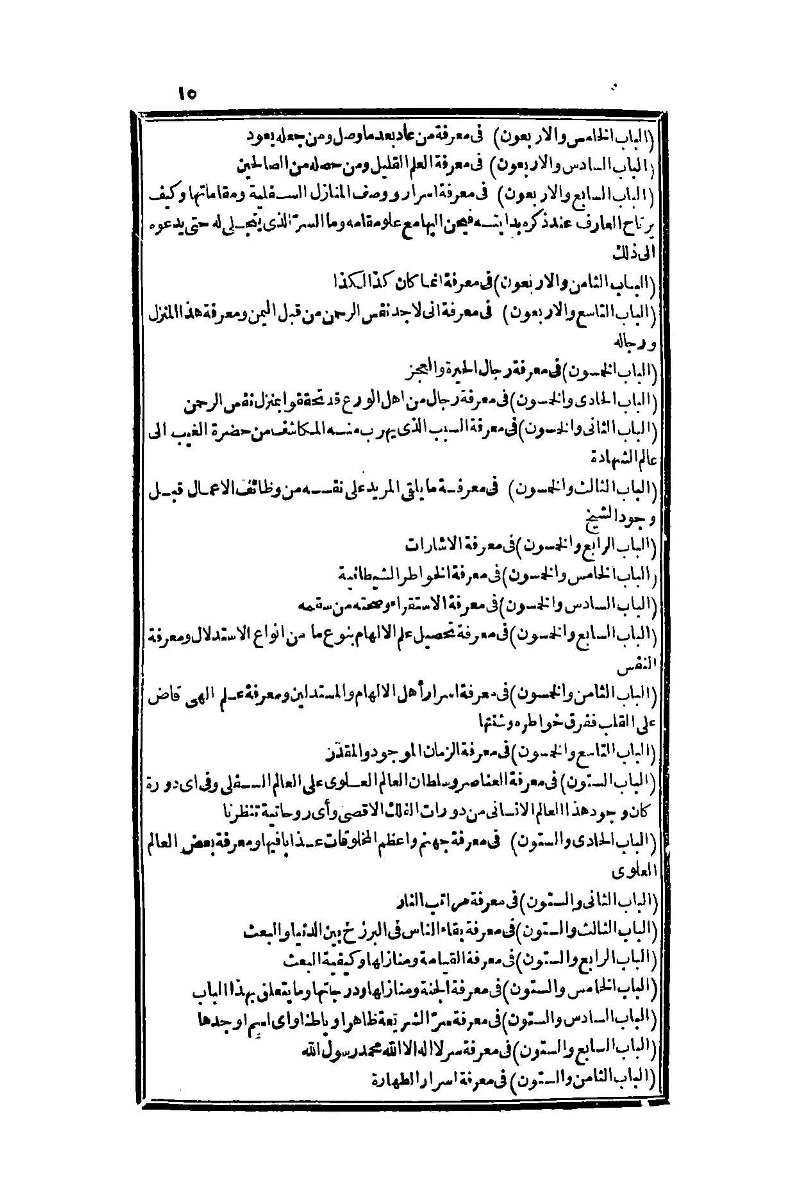 ١٥
(الباب الخامس والاربعون) فى معرفة من عاد بعد ما وصل ومن جعله يعود
(الباب السادس والاربعون) فى معرفة العلم القليل ومن حصله من الصالحين
(الباب السابع والاربعون) فى معرفة اسرار ووصف المنازل السفلية ومقاماتها وكيف
يرتاح العارف عند ذكره بدايته فيحن اليها مع علو مقامه وما السر الذى يتجلى له حتى يدعوه
الى ذلك
(الباب الثامن والاربعون) فى معرفة انما كان كذا لكذا
(الباب التاسع والاربعون) فى معرفة انى لاجد نفس الرحمن من قبل اليمن ومعرفة هذا المنزل
ورجاله
(الباب الخمسون) فى معرفة رجال الحيرة والعجز
(الباب الحادى والخمسون) فى معرفة رجال من اهل الورع قد تحققوا بمنزل نفس الرحمن
(الباب الثانى والخمسون) فى معرفة السبب الذى يهرب منه المكاشف من حضرة الغيب الى
عالم الشهادة
(الباب الثالث والخمسون) فى معرفة ما يلقى المريد على نفسه من وظائف الاعمال قبل
وجود الشيخ
(الباب الرابع والخمسون) فى معرفة الاشارات
(الباب الخامس والخمسون) فى معرفة الخواطر الشيطانية
(الباب السادس والخمسون) فى معرفة الاستقراء وصحته من سقمه
(الباب السابع والخمسون) فى معرفة تحصيل علم الالهام بنوع ما من انواع الاستدلال ومعرفة
النفس
(الباب الثامن والخمسون) فى معرفة اسرار أهل الالهام والمستدلين ومعرفة علم الهى فاض
على القلب ففرق خواطره وشتتها
(الباب التاسع والخمسون) فى معرفة الزمان الموجود والمقدّر
(الباب الستون) فى معرفة العناصر وسلطان العالم العلوى على العالم السفلى وفى اى دورة
كان وجود هذا العالم الانسانى من دورات الفلك الاقصى وأى روحانية تنظرنا
(الباب الحادى والستون) فى معرفة جهنم واعظم المخلوقات عذابا فيها ومعرفة بعض العالم
العلوى
(الباب الثانى والستون) فى معرفة مراتب النار
(الباب الثالث والستون) فى معرفة بقاء الناس فى البرزخ بين الدنيا والبعث
(الباب الرابع والستون) فى معرفة القيامة ومنازلها وكيفية البعث
(الباب الخامس والستون) فى معرفة الجنة ومنازلها ودرجاتها وما يتعلق بهذا الباب
(الباب السادس والستون) فى معرفة سرّ الشريعة ظاهرا وباطنا واى اسم اوجدها
(الباب السابع والستون) فى معرفة سر لا اله الا الله محمد رسول الله
(الباب الثامن والستون) فى معرفة اسرار الطهارة